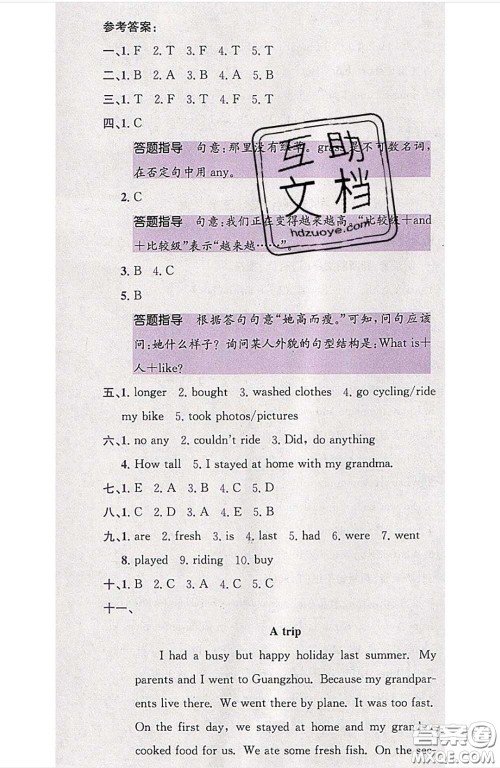 参考答案:
一、1. F 2. T 3. F 4. T 5. T
二、1. B 2. A 3. B 4. A 5. B
三、1. T 2. F 3. T 4. F 5. F
四、1. C
答题指导 句意:那里没有绿草。grass是不可数名词,
在否定句中用any。
2. C
答题指导 句意:我们正在变得越来越高。“比较级+and
+比较级”表示“越来越……”。
3. B 4. C
5. B
答题指导 根据答句句意“她高而瘦。”可知,问句应该
问:她什么样子?询问某人外貌的句型结构是:What is+
人+like?
五、1. longer 2. bought 3. washed clothes 4. go cycling/ride
my bike 5. took photos/pictures
六、1. no any 2. couldn't ride 3. Did, do anything
4. How tall 5. I stayed at home with my grandma.
七、1. E 2. A 3. B 4. C 5. D
八、1. C 2. D 3. A 4. E 5. B
九、1. are 2. fresh 3. is 4. last 5. had 6. were 7. went
8. played 9. riding 10. buy
十、1. B 2. C 3. A 4. C 5. C
十一、
A trip
I had a busy but happy holiday last summer. My
parents and I went to Guangzhou. Because my grandpar-
ents live there. We went there by plane. It was too fast.
On the first day, we stayed at home and my grand
cooked food for us. We ate some fresh fish. On the sec-
互助
文档
hdzuoye.com
答案圈
MXQE.COM